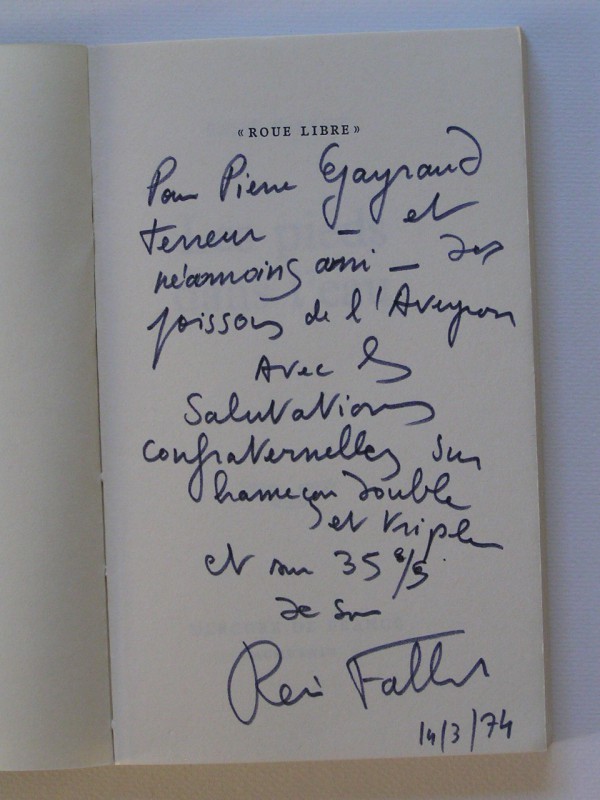 « ROUE LIBRE »
Pour Pierre Gayraud
terreur – et
néamoins ami – des
poissons de l'Aveyron
Avec les
Salutations
confraternelles sur
hameçon double
et triple
et sur 35 %
de son
René Fallet
14/3/74